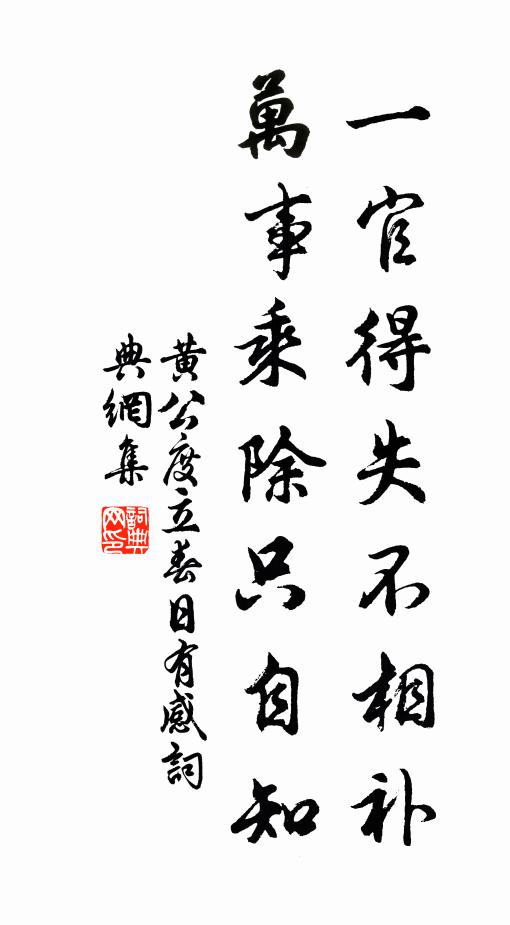 一官得失不相补
萬事乘除只自知
黄公度立春日有感詞
典網集
詞典
网印